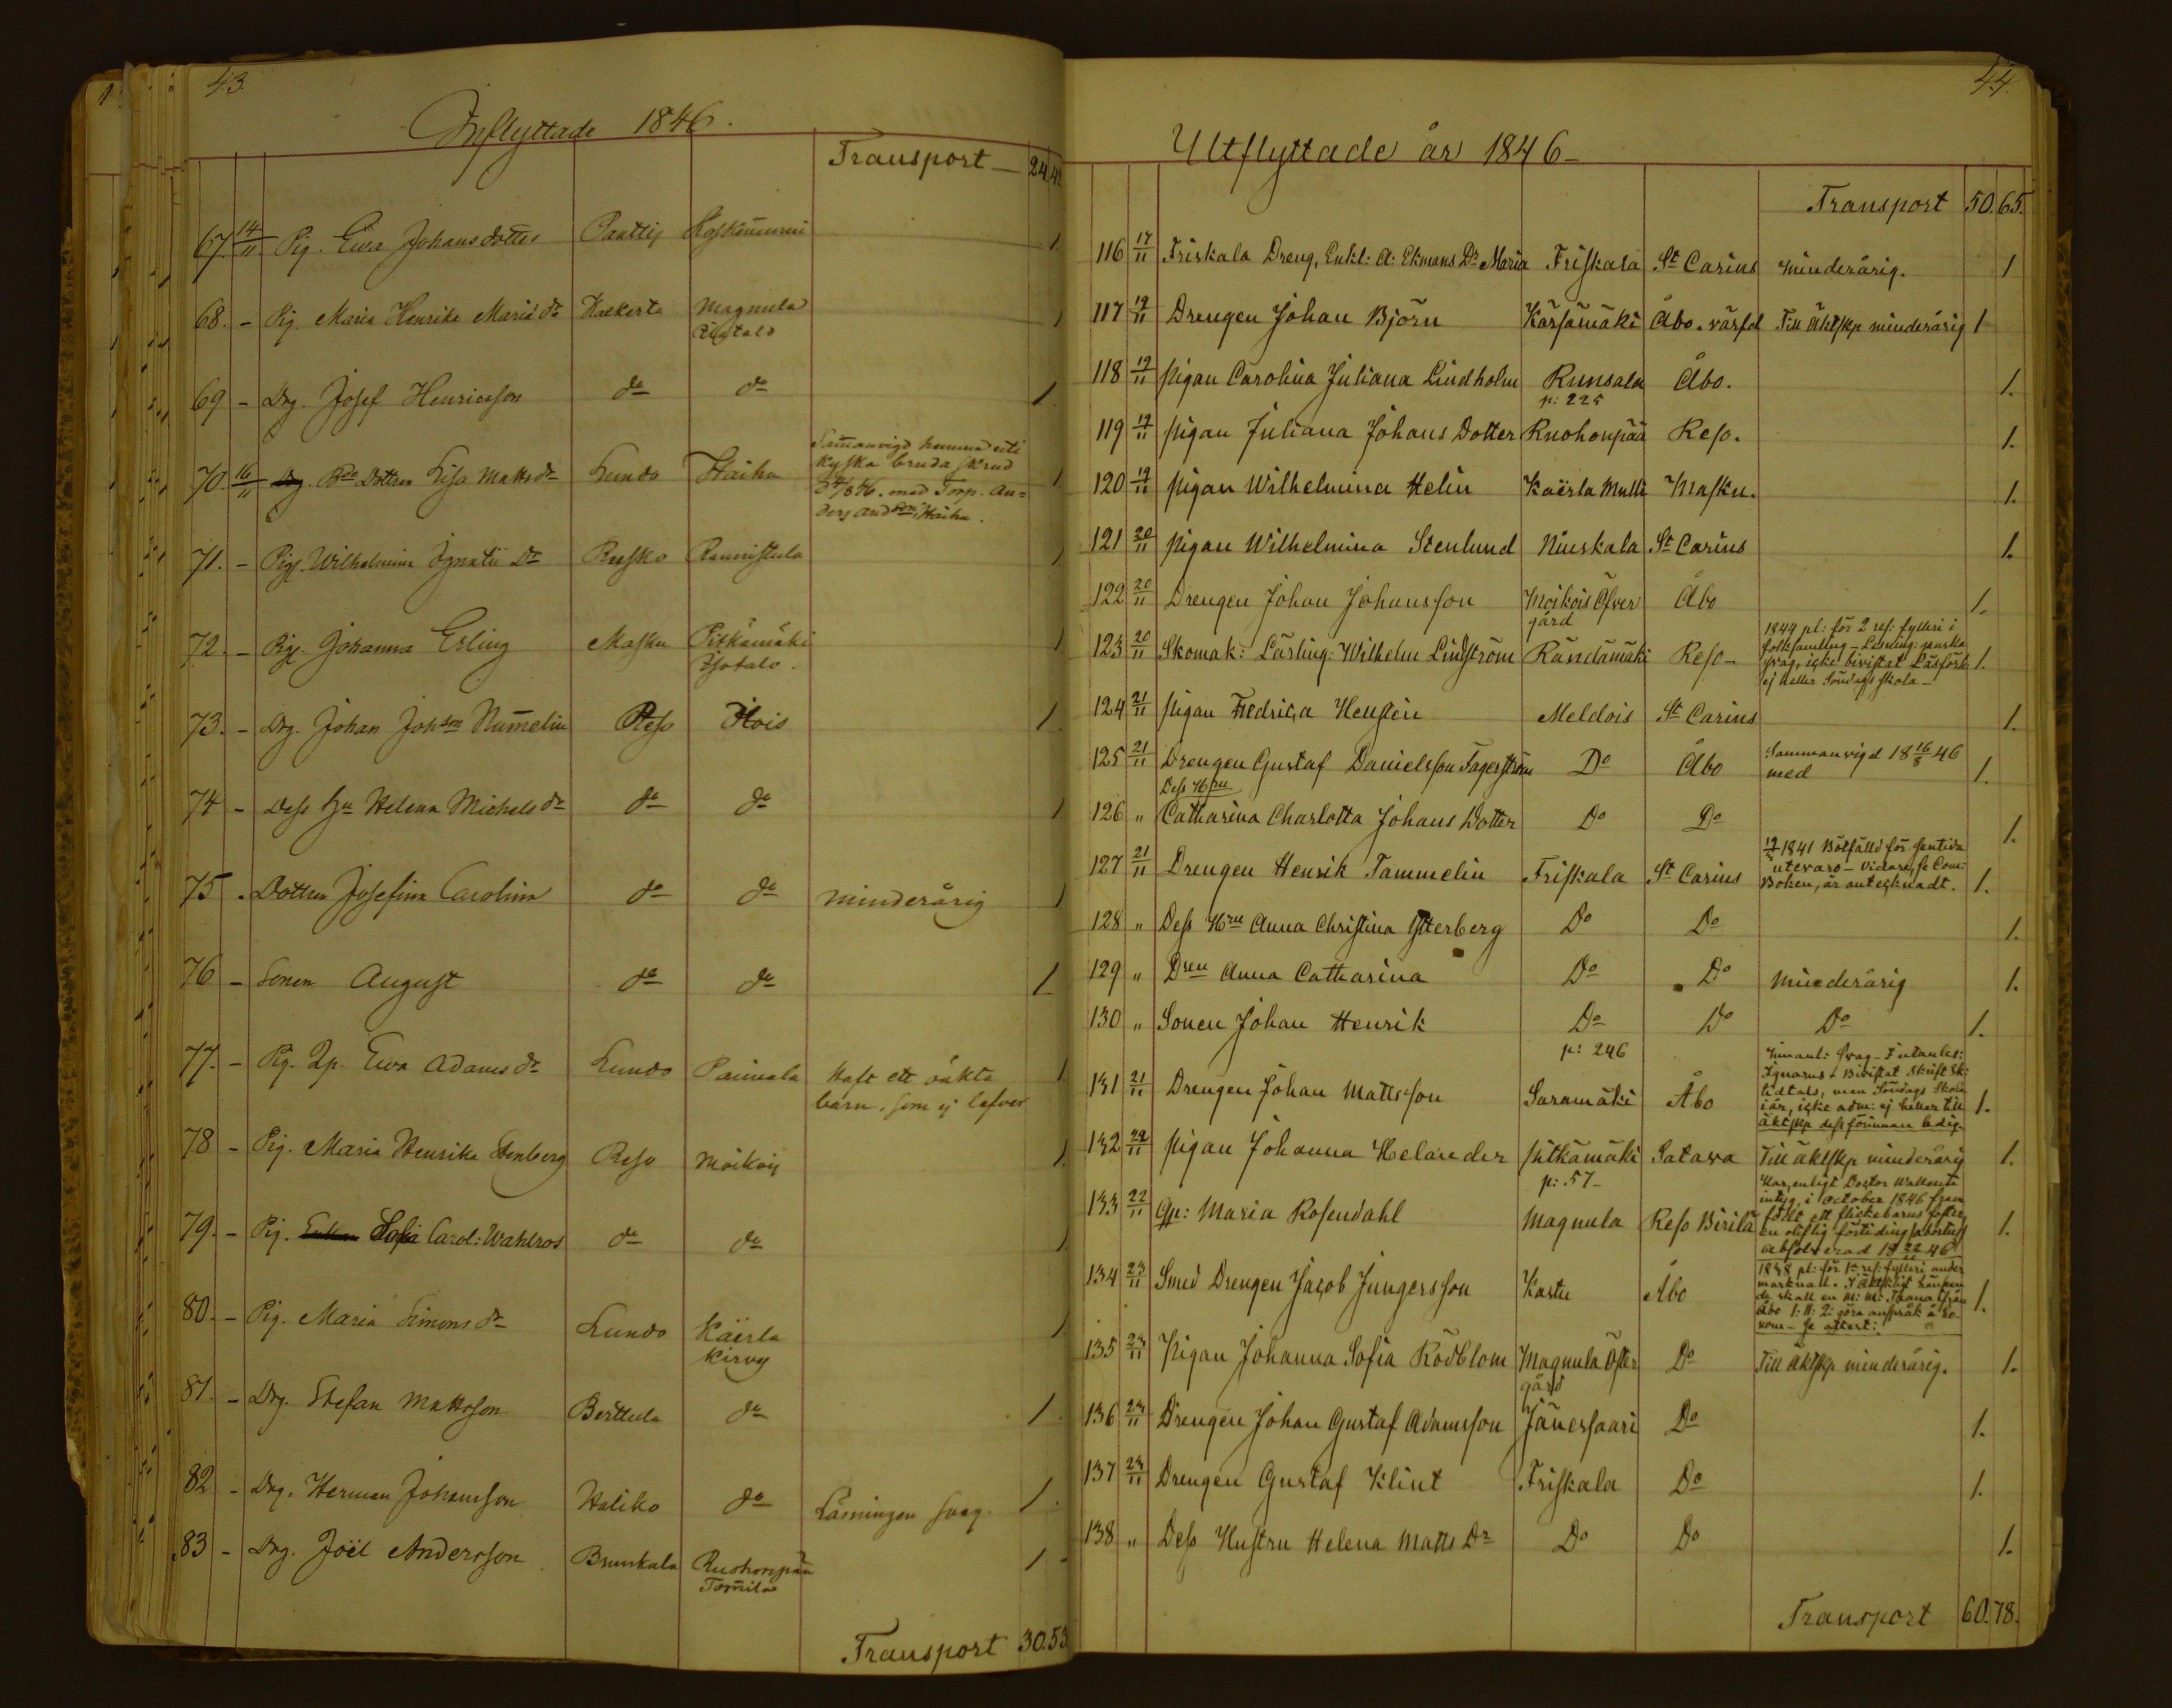 43.
Inflyttade 1846.
Transport — 24 42
67. 14/11 Pig. Ewa Johansdotter Paattis Koskennummi 1
68. - Pig. Maria Henrika Mariæ dr Kakerta Magnula 1
Qvistals
69 - Drg. Josef Henricsson do do 1
70. 16/11 Bde Dottren Lisa Matts dr Lundo Haiha Sam̅anvigd hemma uti 1
kyska bruda skrud
d 4/8 46. med Torp. An=
ders And son, Haihu.
71. - Pig. Wilhelmina Ignatii dr Rusko Raunistula 1
72. - Pig. Johanna Erling Masku Pitkämäki 1
Isotalo.
73. - Drg. Johan Joh son Num̅elin Reso Hois 1
74 - Dess Hu Helena Michels dr do do 1
75. - Dottren Josefina Carolina do do minderårig 1
76 - Sonen August do do 1
77. - Pig. Qp. Ewa Adams dr Lundo Paimala Haft ett oäkta 1
barn, som ej lefver
78 - Pig. Maria Henrika Stenberg Reso Moikois 1
79. - Pig. Sofia Carol: Wahlros do do 1
80. - Pig. Maria Simons dr Lundo Käirla 1
Kirvy
81. - Drg. Stefan Mattsson Berttula do 1
82 - Drg. Herman Johansson Haliko do Läsningen svag. 1.
83 - Drg. Joël Andersson Brunkala Ruohonpää 1 -
Tom̅ila
Transport 30.53
44.
Utflyttade år 1846 -
Transport 50.65.
116 17/11 Friskala Dreng, Enkl: A: Ekmans Dr Maria Friskala St Carins minderårig. 1
117 19/11 Drengen Johan Björn Kärsämäki Åbo. Till äktskp minderårig 1
118 19/11 pigan Carolina Juliana Lindholm Runsala Åbo. 1.
p: 225
119 19/11 pigan Juliana Johans Dotter Ruohonpää Reso. 1.
120 19/11 pigan Wilhelmina Helin Kaërla Mulli Masku. 1.
121 20/11 pigan Wilhelmina Stenlund Niuskala St Carins 1.
122 20/11 Drengen Johan Johansson Moikois Öfver Åbo 1.
gård
123 20/11 Skomak: Lärling: Wilhelm Lindström Rändämäki Reso - 1844 pl: för 2 res: fylleri i 1.
folksamling - Läsning: ganska
svag, icke bivistat Läsförh:
ej heller Söndags skola -
124 21/11 pigan Fredrica Hensten Meldois St Carins 1.
125 21/11 Drengen Gustaf Danielsson Fagerström Do Åbo Sammanvigd 18 16/8 46 1.
med
Dess Hru
126 " Catharina Charlotta Johans Dotter Do Do 1.
127 21/11 Drengen Henrik Tammelin Friskala St Carins 1841 Bötfälld för sentida 1.
utevaro - vidare, se Com:
Boken, är antecknadt.
128 " Dess Hru Anna Christina Ytterberg Do Do 1.
129 " Dren Anna Catharina Do Do minderårig 1.
130 " Sonen Johan Henrik Do Do Do 1.
p: 246
131 21/11 Drengen Johan Mattsson Saramäki Åbo Innanl: svag - Utanles: 1.
Ignarus - Bivistat Skrift Sk:
tidtals, men Söndags Skola
i år, icke adm: ej heller till
äktskp dess förinnan ledig.
132 22/11 pigan Johanna Helander pitkämäki Satava Till äktskp minderårig 1.
p: 57 -
133 22/11 Qp: Maria Rosendahl Magnula Reso Birila Har, enligt Doctor Wallenii 1.
intyg, i October 1846 fram
födt ett flickebarns foster,
en oliflig förtiding (abortus)
absolverad 18 22/11 46
134 23/11 Smed Drengen Jacob Jungersson Kastu Åbo 1838 pl: för 1a res: fylleri under 1.
marknad.
de skall en M: M: Taana från
Åbo göra anspråk å ho-
nom - se attest:
135 23/11 Pigan Johanna Sofia Rödblom Magnula Öfver Do Till äktskp minderårig. 1.
gård
136 23/11 Drengen Johan Gustaf Adamsson Jänessaari Do 1.
137 23/11 Drengen Gustaf Klint Friskala Do 1.
138 " Dess Hustru Helena Matts Dr Do Do 1.
Transport 60.78.